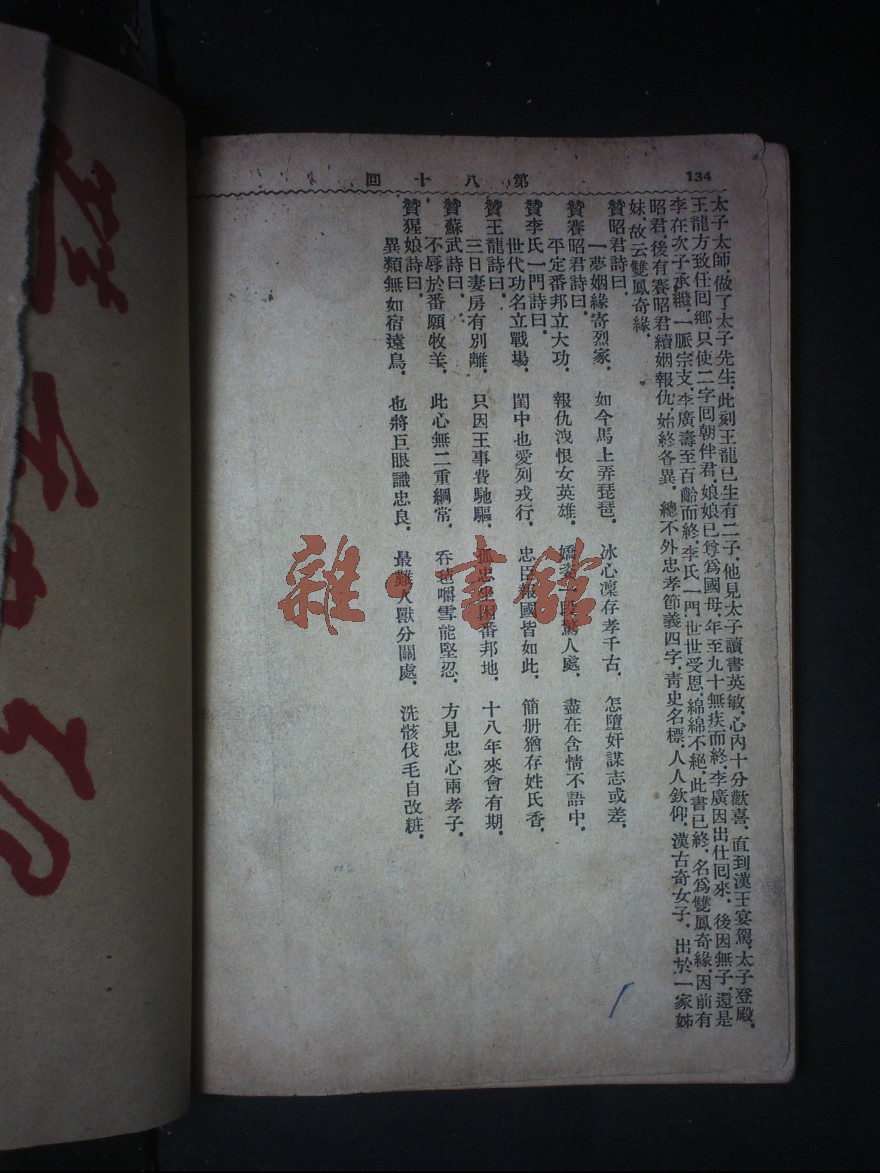 134
第八十回
太子太師．做了太子先生．此刻王龍已生有二子．他見太子讀書英敏．心內十分歡喜．直到漢王宴駕．太子登殿．
王龍方致任回鄉．只使二字回朝伴君．娘娘已尊為國母．年至九十無疾而終．李廣因出仕回來．後因無子．還是
李在次子承繼．一脈宗支．李廣壽至百齡而終．李氏一門．世世受恩．綿綿不絕．此書已終．名為雙鳳奇緣．因前有
昭君．後有賽昭君續姻報仇．始終各異．總不外忠孝節義四字．青史名標．人人欽仰．漢古奇女子．出於一家姊
妹．故云雙鳳奇緣．
贊昭君詩曰．
一夢姻緣寄烈家．如今馬上弄琵琶．冰心凜存孝千古．怎墮奸謀志或差．
贊賽昭君詩曰．
平定番邦立大功．報仇洩恨女英雄．嬌姿一段驚人處．盡在含情不語中．
贊李氏一門詩曰．
世代功名立戰場．閨中也愛列戎行．忠臣報國皆如此．簡册猶存姓氏香．
贊王龍詩曰．
三日妻房有別離．只因王事費馳驅．孤忠坐困番邦地．十八年來會有期．
贊蘇武詩曰．
不辱於番願牧羊．此心無二重綱常．吞氊嚼雪能堅忍．方見忠心兩孝子．
贊猩娘詩曰．
異類無如宿遠鳥．也將巨眼識忠良．最難人獸分關處．洗骸伐毛自改粧．
雜·書館